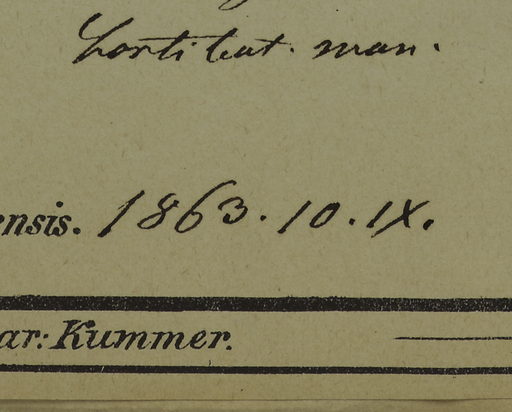 horti bot. mon.
ensis. 1863. 10. IX.
ar: Kummer.